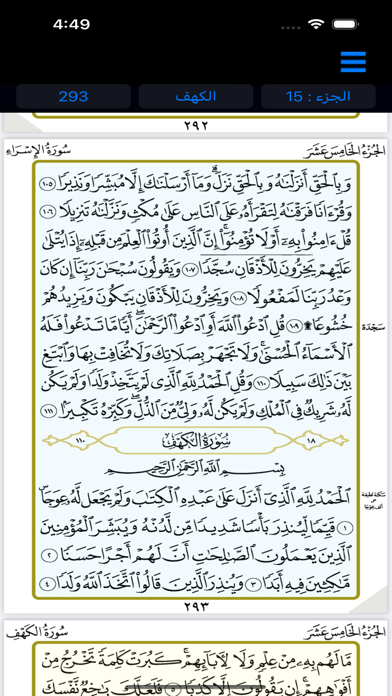 4:49
293
الكهف
الجزء : 15
٢٩٢
الجُزْءُ الخَامِسَ عَشَرَ
سُورَةُ الإِسْرَاءِ
وَبِالْحَقِّ أَنزَلْنَٰهُ وَبِالْحَقِّ نَزَلَ ۗ وَمَا أَرْسَلْنَٰكَ إِلَّا مُبَشِّرًا وَنَذِيرًا ١٠٥
وَقُرْءَانًا فَرَقْنَٰهُ لِتَقْرَأَهُۥ عَلَى النَّاسِ عَلَىٰ مُكْثٍ وَنَزَّلْنَٰهُ تَنزِيلًا ١٠٦
قُلْ ءَامِنُوا بِهِۦٓ أَوْ لَا تُؤْمِنُوٓا ۚ إِنَّ الَّذِينَ أُوتُوا الْعِلْمَ مِن قَبْلِهِۦٓ إِذَا يُتْلَىٰ
عَلَيْهِمْ يَخِرُّونَ لِلْأَذْقَانِ سُجَّدًا ١٠٧ وَيَقُولُونَ سُبْحَٰنَ رَبِّنَآ إِن كَانَ
وَعْدُ رَبِّنَا لَمَفْعُولًا ١٠٨ وَيَخِرُّونَ لِلْأَذْقَانِ يَبْكُونَ وَيَزِيدُهُمْ
خُشُوعًا ۩ ١٠٩ قُلِ ادْعُوا اللَّهَ أَوِ ادْعُوا الرَّحْمَٰنَ ۖ أَيًّا مَّا تَدْعُوا فَلَهُ
سَجْدَة
الْأَسْمَآءُ الْحُسْنَىٰ ۚ وَلَا تَجْهَرْ بِصَلَاتِكَ وَلَا تُخَافِتْ بِهَا وَابْتَغِ
بَيْنَ ذَٰلِكَ سَبِيلًا ١١٠ وَقُلِ الْحَمْدُ لِلَّهِ الَّذِى لَمْ يَتَّخِذْ وَلَدًا وَلَمْ يَكُن
لَّهُۥ شَرِيكٌ فِى الْمُلْكِ وَلَمْ يَكُن لَّهُۥ وَلِىٌّ مِّنَ الذُّلِّ ۖ وَكَبِّرْهُ تَكْبِيرًا ١١١
١٨ سُورَةُ الكَهْفِ ١١٠
بِسْمِ اللَّهِ الرَّحْمَٰنِ الرَّحِيمِ
الْحَمْدُ لِلَّهِ الَّذِىٓ أَنزَلَ عَلَىٰ عَبْدِهِ الْكِتَٰبَ وَلَمْ يَجْعَل لَّهُۥ عِوَجًا ۜ
سَكتة لطيفة
١ قَيِّمًا لِّيُنذِرَ بَأْسًا شَدِيدًا مِّن لَّدُنْهُ وَيُبَشِّرَ الْمُؤْمِنِينَ
الَّذِينَ يَعْمَلُونَ الصَّٰلِحَٰتِ أَنَّ لَهُمْ أَجْرًا حَسَنًا ٢
مَّٰكِثِينَ فِيهِ أَبَدًا ٣ وَيُنذِرَ الَّذِينَ قَالُوا اتَّخَذَ اللَّهُ وَلَدًا ٤
٢٩٣
الجُزْءُ الخَامِسَ عَشَرَ
سُورَةُ الكَهْفِ
مَّا لَهُم بِهِۦ مِنْ عِلْمٍ وَلَا لِءَابَآئِهِمْ ۚ كَبُرَتْ كَلِمَةً تَخْرُجُ مِنْ
أَفْوَٰهِهِمْ ۚ إِن يَقُولُونَ إِلَّا كَذِبًا ٥ فَلَعَلَّكَ بَٰخِعٌ نَّفْسَكَ